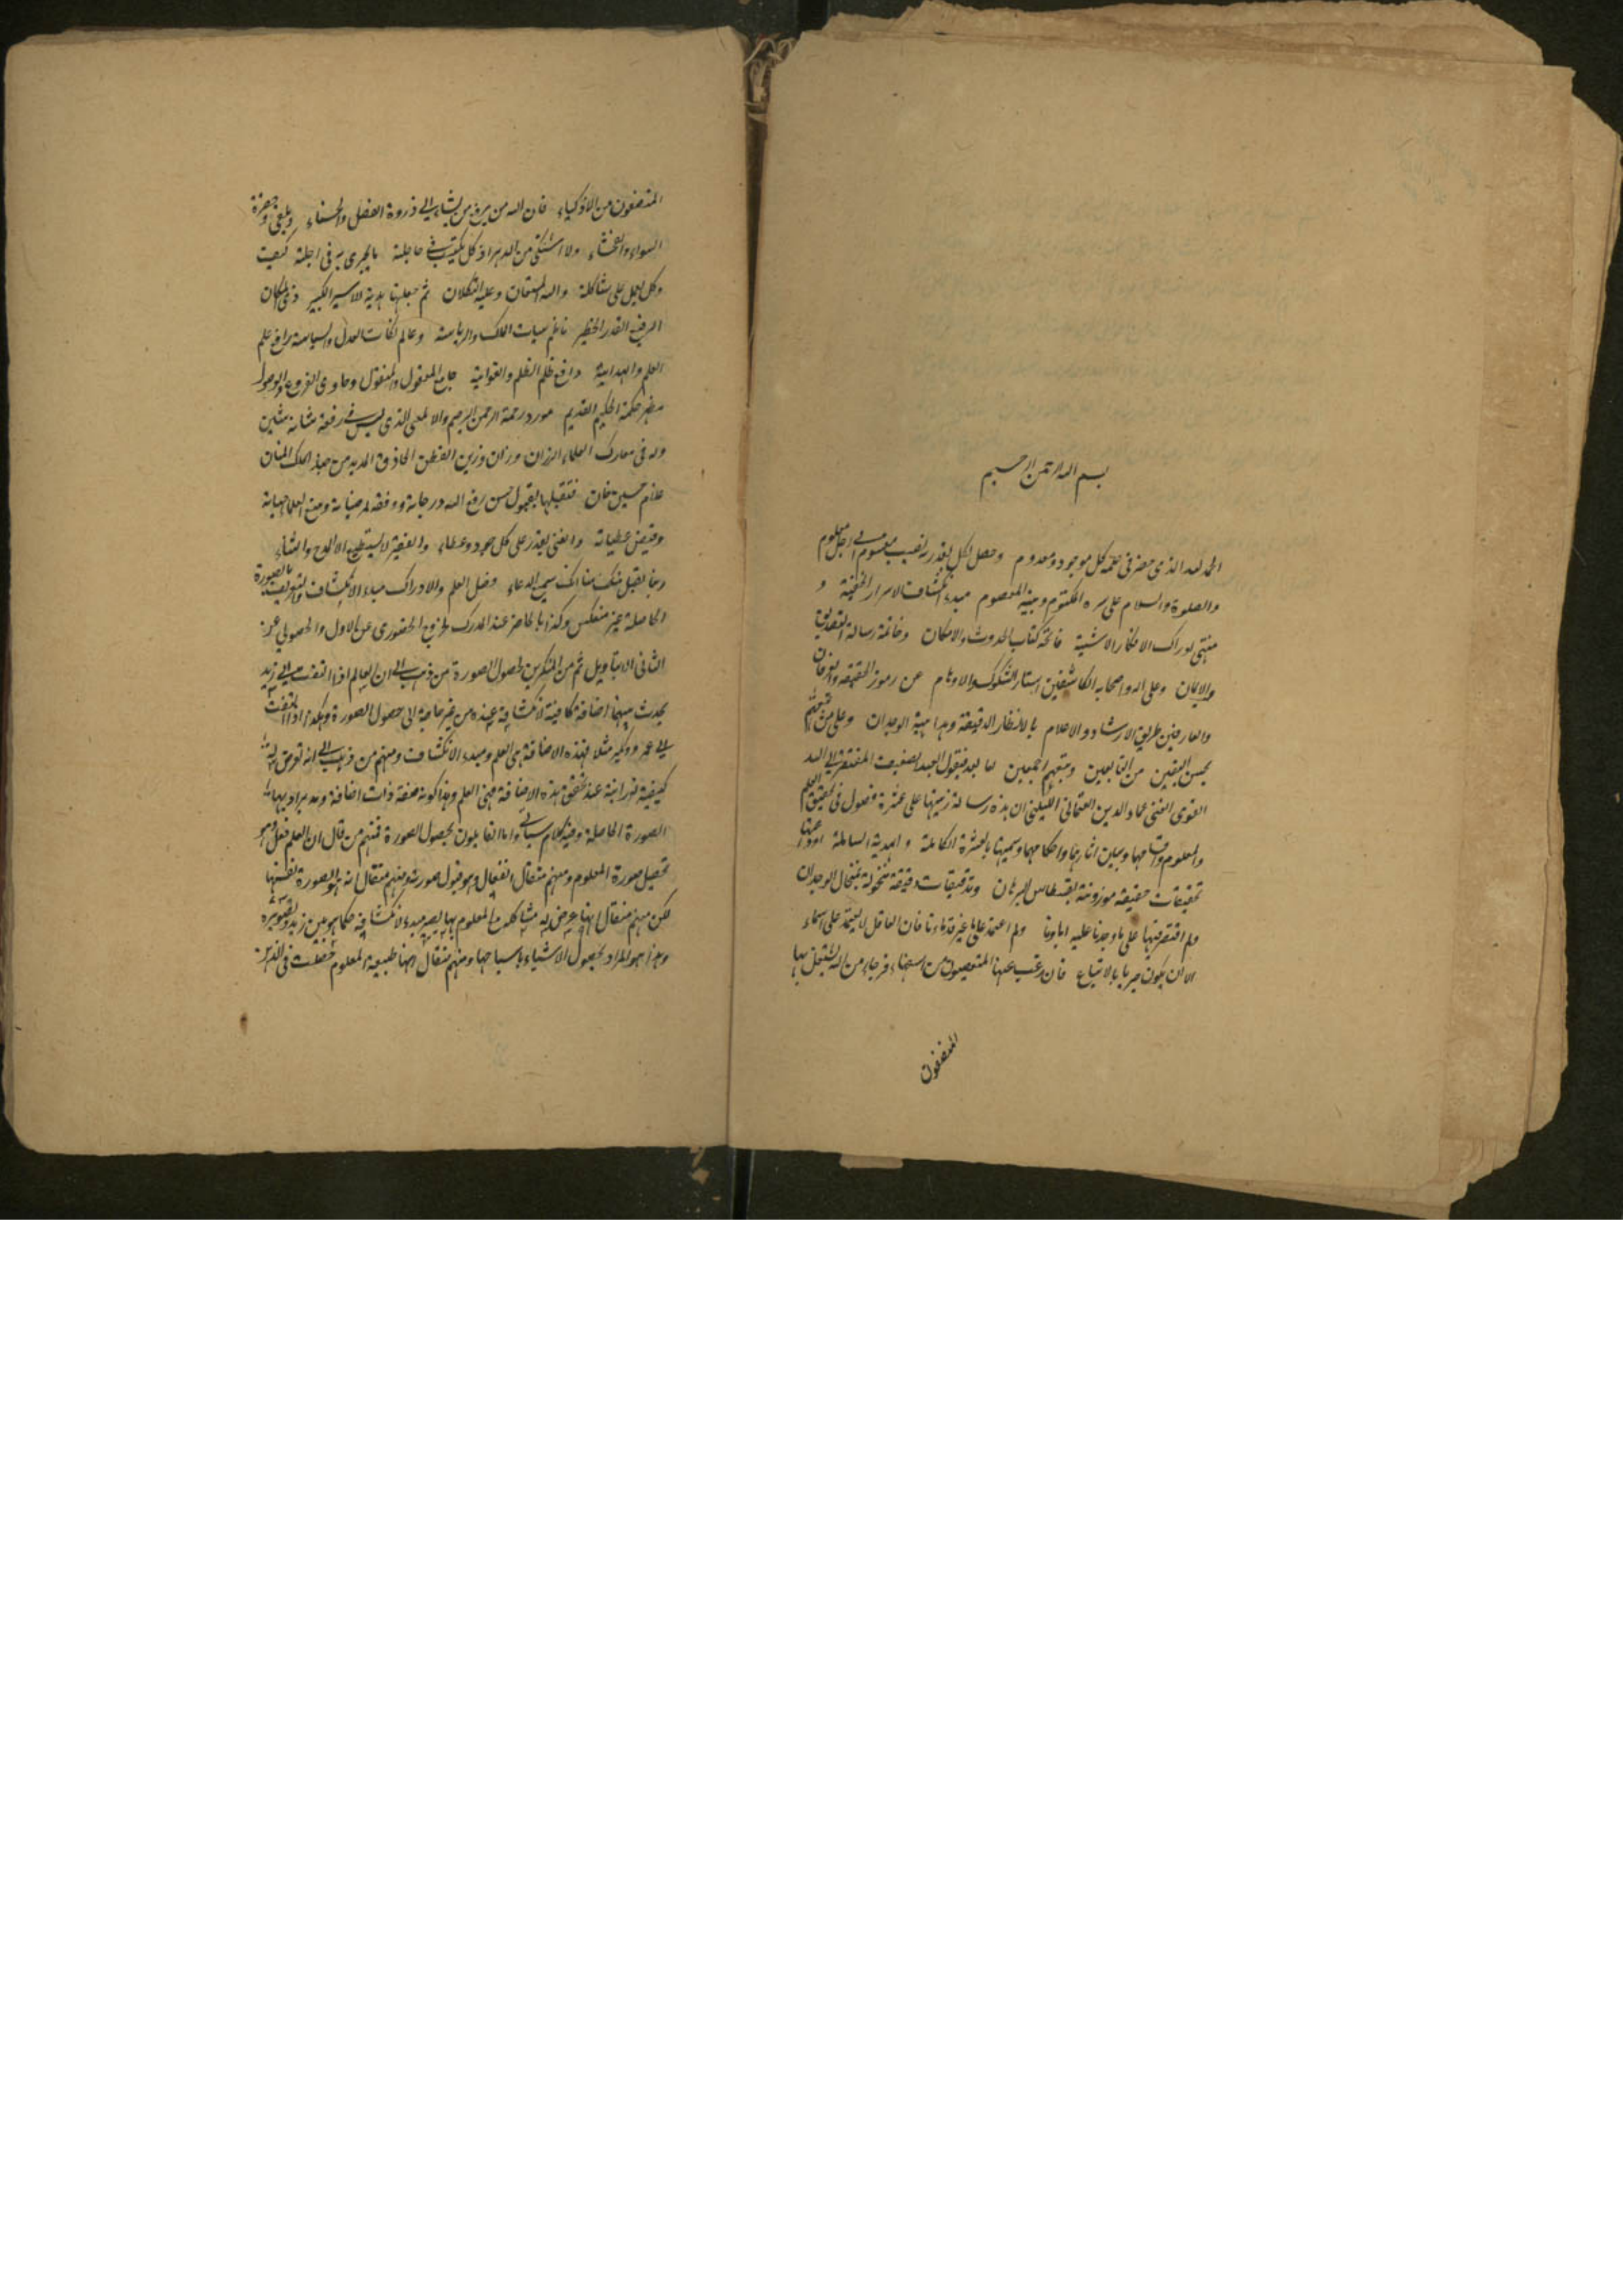 بسم الله الرحمن الرحيم
الحمد لله الذى حضر فى علمه كل موجود ومعدوم وحصل لكل بقدر نصيب مقسوم الى اجل معلوم
والصلوة والسلام على سره المكتوم ونبيه المعصوم مبدء انكشاف الاسرار الخفية و
منتهى ادراك الافكار فاتحة كتاب الحدوث والامكان وخاتمة رسالة التصديق
والايمان وعلى اله واصحابه الكاشفين استار الشكوك والاوهام عن رموز الحقيقة والعرفان
والعارفين طريق الارشاد والاعلام بالانظار الدقيقة وبداهية الوجدان وعلى من تبعهم
بحسن اليقين من التابعين وتبعهم اجمعين اما بعد فيقول العبد الضعيف المفتقر الى الله
القوى الغنى عماد الدين العثمانى اللبكنى ان هذه رسالة رتبتها على عشرة فصول فى تحقيق العلم
والمعلوم واقسامهما وبيان اثارهما واحكامهما وسميتها بالعشرة الكاملة والهدية الشاملة
تحقيقات حقيقة موزونة بقسطاس البرهان وتدقيقات دقيقة منخولة بمنخال الوجدان
ولم اقتصر فيها على ما وجدنا عليه اباءنا ولم اعتمد على غير قدماءنا فان العاقل لا يعتمد على اسماء
الا ان يكون حريا بالاتباع فان رغب عنها المتعصبون من السفهاء فرجاء من الله ان يشتغل بها
المنصفون
المنصفون من الاذكياء فان الله من يرفع من يشاء الى ذروة الفضل والحسناء
السواء والفحشاء ولا اشتكى من الدهر اذ كل يكتب فى عاجلة ما يجرى به فى اجلة كيف
وكل يعمل على شاكلة والله المستعان وعليه التكلان ثم جعلتها هدية للامير الكبير ذى المكان
الرفيع القدر الخطير ناظم الملك والرياسة وعالم نكات العدل والسياسة رافع علم
العلم والهداية دافع ظلم الظلم والغواية جامع المعقول والمنقول وحاوى الفروع والاصول
مظهر حكمة الحكيم القديم مورد رحمة الرحمن الرحيم والالمعى الذى ليس فى رفعة شانه
وله فى معارك العلماء الرزان وزان رزين الفطن الحاذق المديد من عند الملك المنان
غلام حسين خان فتقبلها بقبول حسن رفع الله درجاته ووفقه لمرضياته
عطياته والغنى يقدر على كل جود وعطاء والفقير لا يستطيع الا المدح والثناء
ربنا تقبل منا انك سميع الدعاء فصل العلم والادراك مبدء الانكشاف والتعريف بالصورة
الحاصلة غير منعكس وكذا بالحاضر عند المدرك لخروج الحضورى عن الاول والحصولى عن
الثانى الا بتاويل ثم من المنكرين لحصول الصورة من ذهب الى ان العالم اذا التفت الى زيد
يحدث بينهما اضافة كافية لانكشافه عنده من غير حاجة الى حصول الصورة وهكذا اذا التفت
الى عمرو وبكر مثلا فهذه الاضافة هى العلم ومبدء الانكشاف ومنهم من ذهب الى انه تعرض له
كيفية نورانية عند تحقق هذه الاضافة فهى العلم وهذا كونه صفة ذات اضافة وقد يراد بها
الصورة الحاصلة وفيه كلام سياتى واما القايلون بحصول الصورة فمنهم من قال ان العلم فعل وهو
تحصيل صورة المعلوم ومنهم من قال انفعال وهو قبول صورته ومنهم من قال انه الصورة نفسها
لكن منهم من قال انها عرض له مشاكلة مع المعلوم بها يصير مبدء لانكشافه كما هو بين زيد وتصويره
وهذا هو المراد بحصول الاشياء باشباحها ومنهم من قال انها طبيعة المعلوم حصلت فى الذهن